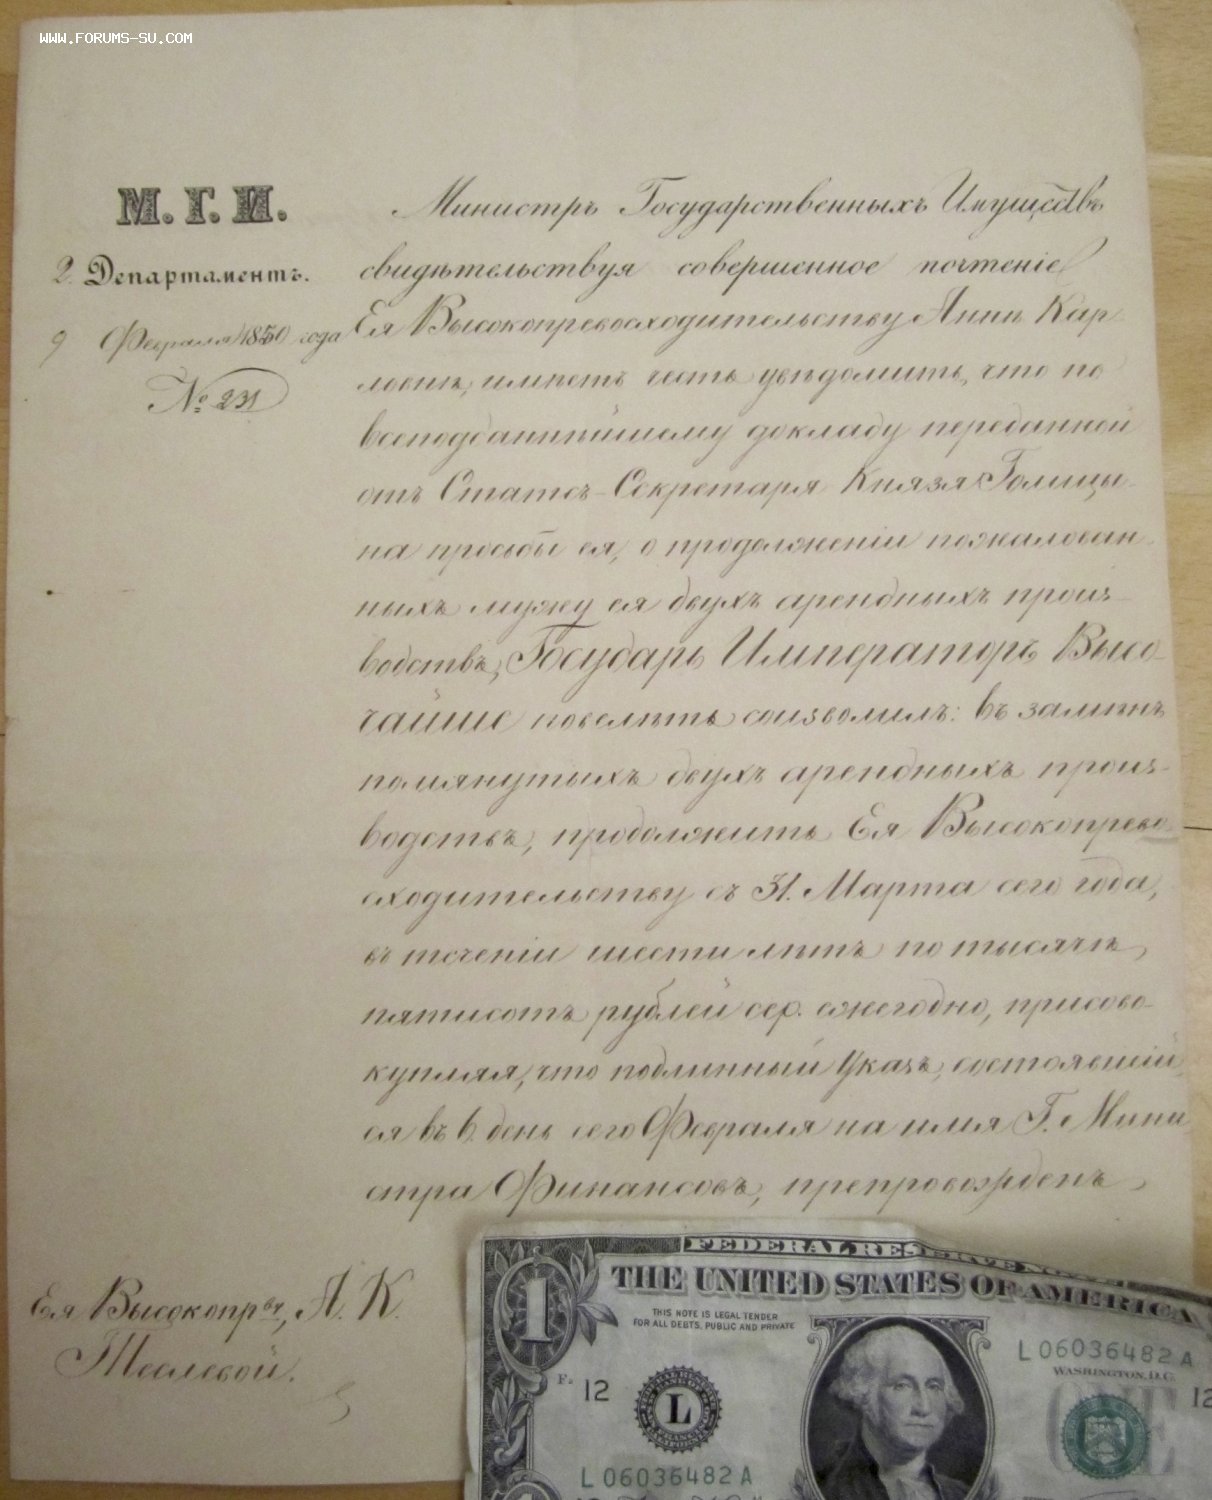 WWW.FORUMS-SU.COM
М. Г. И.
2. Департаментъ.
9 Февраля 1850 года
№ 231
Министръ Государственныхъ Имуществъ
свидѣтельствуя совершенное почтеніе
Ея Высокопревосходительству Аннѣ Кар-
ловнѣ, имѣетъ честь увѣдомить, что по
всеподданнѣйшему докладу переданной
отъ Статсъ-Секретаря Князя Голицы-
на просьбы ея, о продолженіи пожалован-
ныхъ мужу ея двухъ арендныхъ произ-
водствъ, Государь Императоръ Высо-
чайше повелѣть соизволилъ: въ замѣнъ
помянутыхъ двухъ арендныхъ произ-
водствъ, продолжить Ея Высокопрево-
сходительству съ 31. Марта сего года,
въ теченіи шести лѣтъ по тысячѣ
пятисотъ рублей сер. ежегодно, присово-
купляя, что подлинный Указъ, состоявшій
ся въ 6 день сего Февраля на имя Г. Мини-
стра Финансовъ, препровожденъ
Ея Высокопрву, А. К.
FEDERAL RESERVE NOTE
THE UNITED STATES OF AMERICA
THIS NOTE IS LEGAL TENDER
FOR ALL DEBTS, PUBLIC AND PRIVATE
L 06036482 A
WASHINGTON, D.C.
1
12
L
12
ONE
L 06036482 A
12